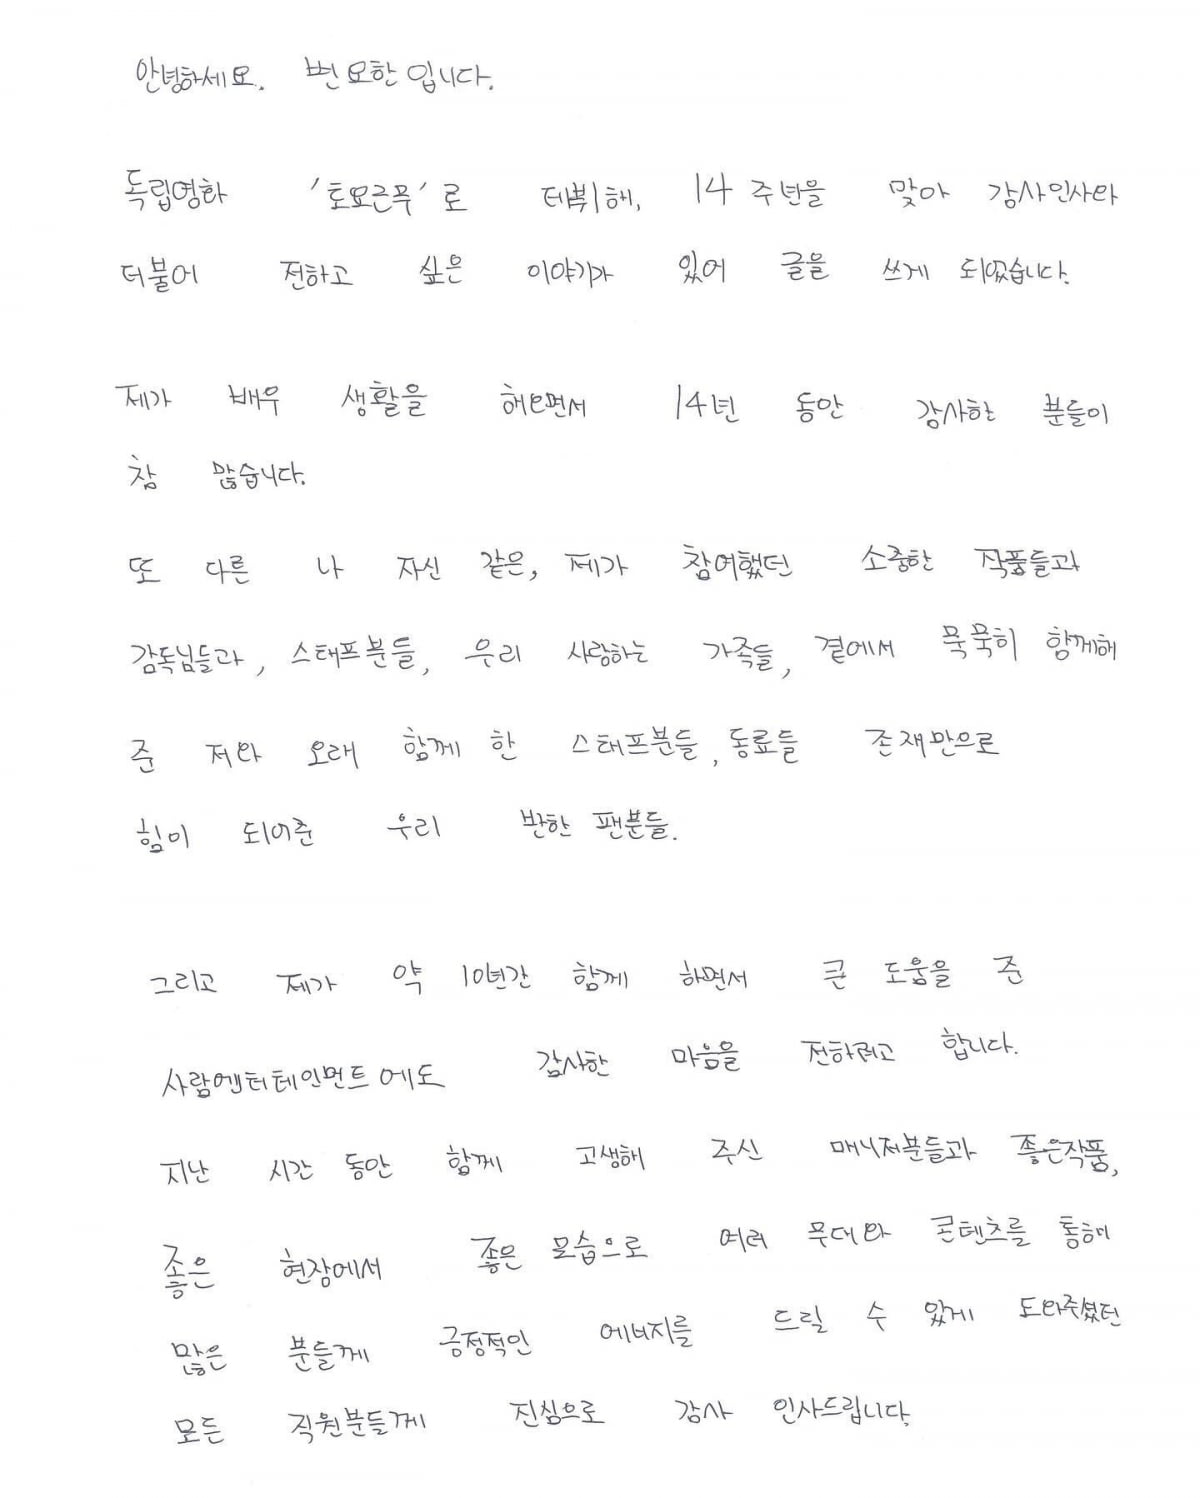 안녕하세요. 변요한입니다.
독립영화 '토요근무'로 데뷔해, 14주년을 맞아 감사인사와
더불어 전하고 싶은 이야기가 있어 글을 쓰게 되었습니다.
제가 배우 생활을 해오면서 14년 동안 감사한 분들이
참 많습니다.
또 다른 나 자신 같은, 제가 참여했던 소중한 작품들과
감독님들과, 스태프분들, 우리 사랑하는 가족들, 곁에서 묵묵히 함께해
준 저와 오래 함께 한 스태프분들, 동료들 존재만으로
힘이 되어준 우리 반한 팬분들.
그리고 제가 약 10년간 함께 하면서 큰 도움을 준
사람엔터테인먼트에도 감사한 마음을 전하려고 합니다.
지난 시간 동안 함께 고생해 주신 매니저분들과 좋은작품,
좋은 현장에서 좋은 모습으로 여러 무대와 콘텐츠를 통해
많은 분들께 긍정적인 에너지를 드릴 수 있게 도와주셨던
모든 직원분들께 진심으로 감사 인사드립니다.